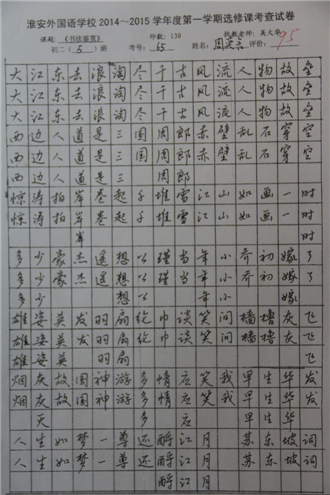 淮安外国语学校2014～2015学年度第一学期选修课考查试卷
课题：《书法鉴赏》 印数：130 执教老师：吴大平
初二（5）班 考号：65 姓名： 评价：95
大江东去浪淘尽千古风流人物故垒
大江东去浪淘尽千古风流人物故垒
西边人道是三国周郎赤壁乱石穿空
西边人道是三国周郎赤壁乱石穿空
西边人道是三 周郎
惊涛拍岸卷起千堆雪江山如画一时
惊涛拍岸卷起千堆雪江山如画一时
岸
多少豪杰遥想公瑾当年小乔初嫁了
多少豪杰遥想公瑾当年小乔初嫁了
多少 想 年小 嫁
雄姿英发羽扇纶巾谈笑间樯橹灰飞
雄姿英发羽扇纶巾谈笑间樯橹灰飞
雄姿英 羽扇
烟灰故国神游多情应笑我早生华发
烟灰故国神游多情应笑我早生华发
灰 多 应 早生华
人生如梦一尊还酹江月 苏东坡词
人生如梦一尊还酹江月 苏东坡词
酹江月